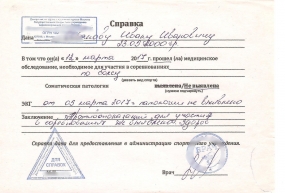 Справка
Дана Иванову Ивану Ивановичу
В том что он(а) 12 марта 2017 прошел (ла) медицинское
обследование, необходимое для участия в соревнованиях
по боксу
Соматическая патология выявлена/Не выявлена
ЭКГ от 05 марта 2017 патологии не выявлено
Заключение Противопоказаний для участия
в соревнованиях не выявлено. Здоров
Справка дана для предоставления в администрацию спортивного учреждения.
Врач
ДЛЯ
СПРАВОК